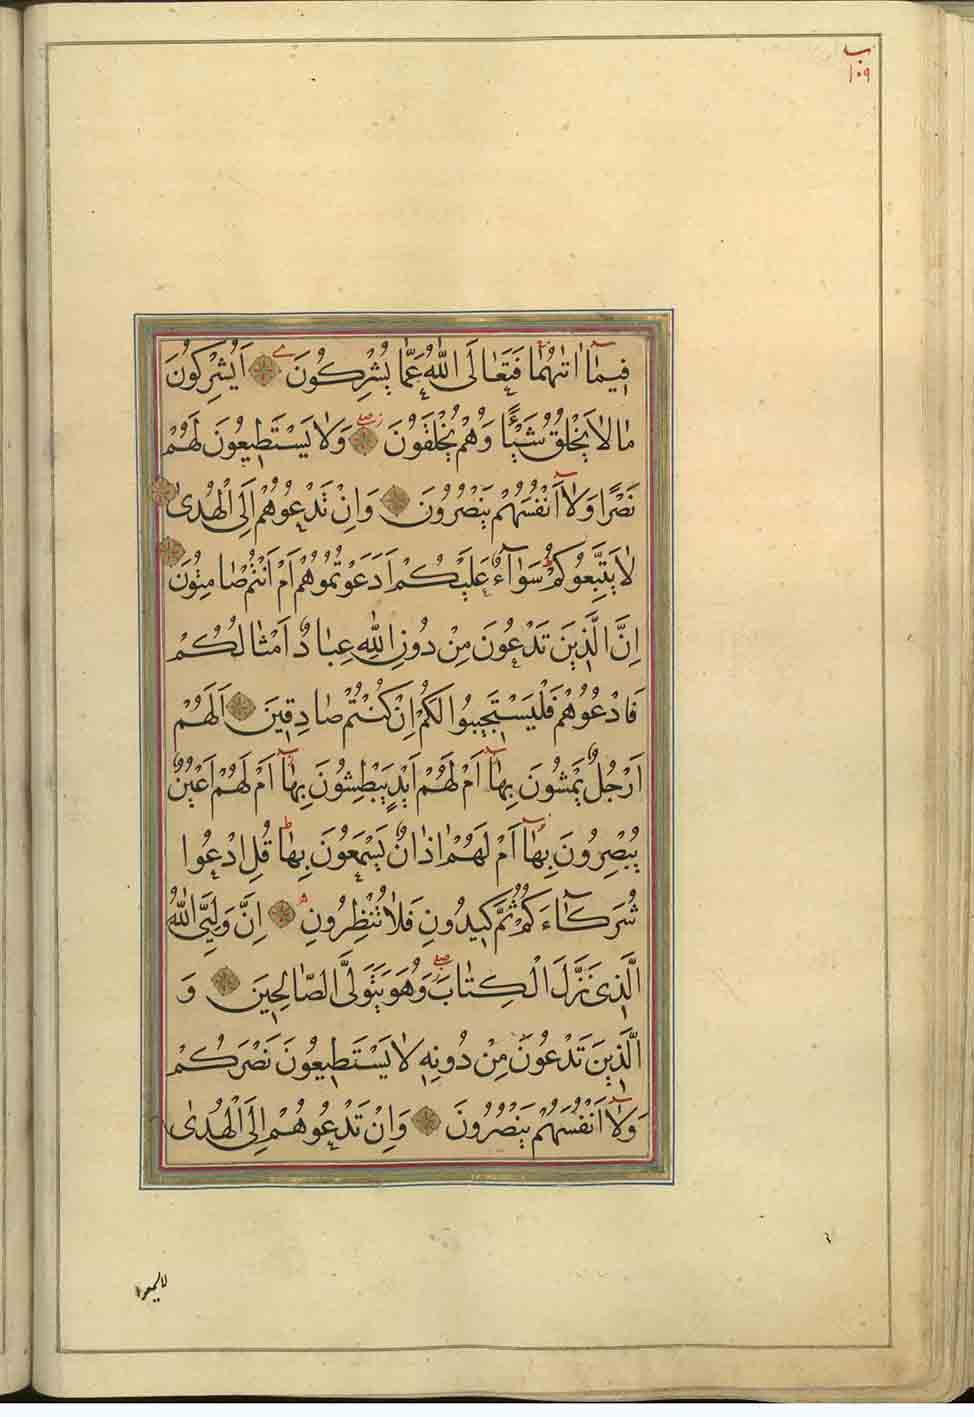 ب
١٠٩
فِيمَآ اٰتٰىهُمَا فَتَعَالَى اللّٰهُ عَمَّا يُشْرِكُونَ اَيُشْرِكُونَ
مَا لَا يَخْلُقُ شَيْـًٔا وَهُمْ يُخْلَقُونَ وَلَا يَسْتَطِيعُونَ لَهُمْ
نَصْرًا وَلَآ اَنْفُسَهُمْ يَنْصُرُونَ وَاِنْ تَدْعُوهُمْ اِلَى الْهُدٰى
لَا يَتَّبِعُوكُمْ سَوَآءٌ عَلَيْكُمْ اَدَعَوْتُمُوهُمْ اَمْ اَنْتُمْ صَامِتُونَ
اِنَّ الَّذِينَ تَدْعُونَ مِنْ دُونِ اللّٰهِ عِبَادٌ اَمْثَالُكُمْ
فَادْعُوهُمْ فَلْيَسْتَجِيبُوا لَكُمْ اِنْ كُنْتُمْ صَادِقِينَ اَلَهُمْ
اَرْجُلٌ يَمْشُونَ بِهَآ اَمْ لَهُمْ اَيْدٍ يَبْطِشُونَ بِهَآ اَمْ لَهُمْ اَعْيُنٌ
يُبْصِرُونَ بِهَآ اَمْ لَهُمْ اٰذَانٌ يَسْمَعُونَ بِهَا قُلِ ادْعُوا
شُرَكَآءَكُمْ ثُمَّ كِيدُونِ فَلَا تُنْظِرُونِ اِنَّ وَلِيِّىَ اللّٰهُ
الَّذِى نَزَّلَ الْكِتَابَ وَهُوَ يَتَوَلَّى الصَّالِحِينَ وَ
الَّذِينَ تَدْعُونَ مِنْ دُونِهِ لَا يَسْتَطِيعُونَ نَصْرَكُمْ
وَلَآ اَنْفُسَهُمْ يَنْصُرُونَ وَاِنْ تَدْعُوهُمْ اِلَى الْهُدٰى
لا يسمعوا